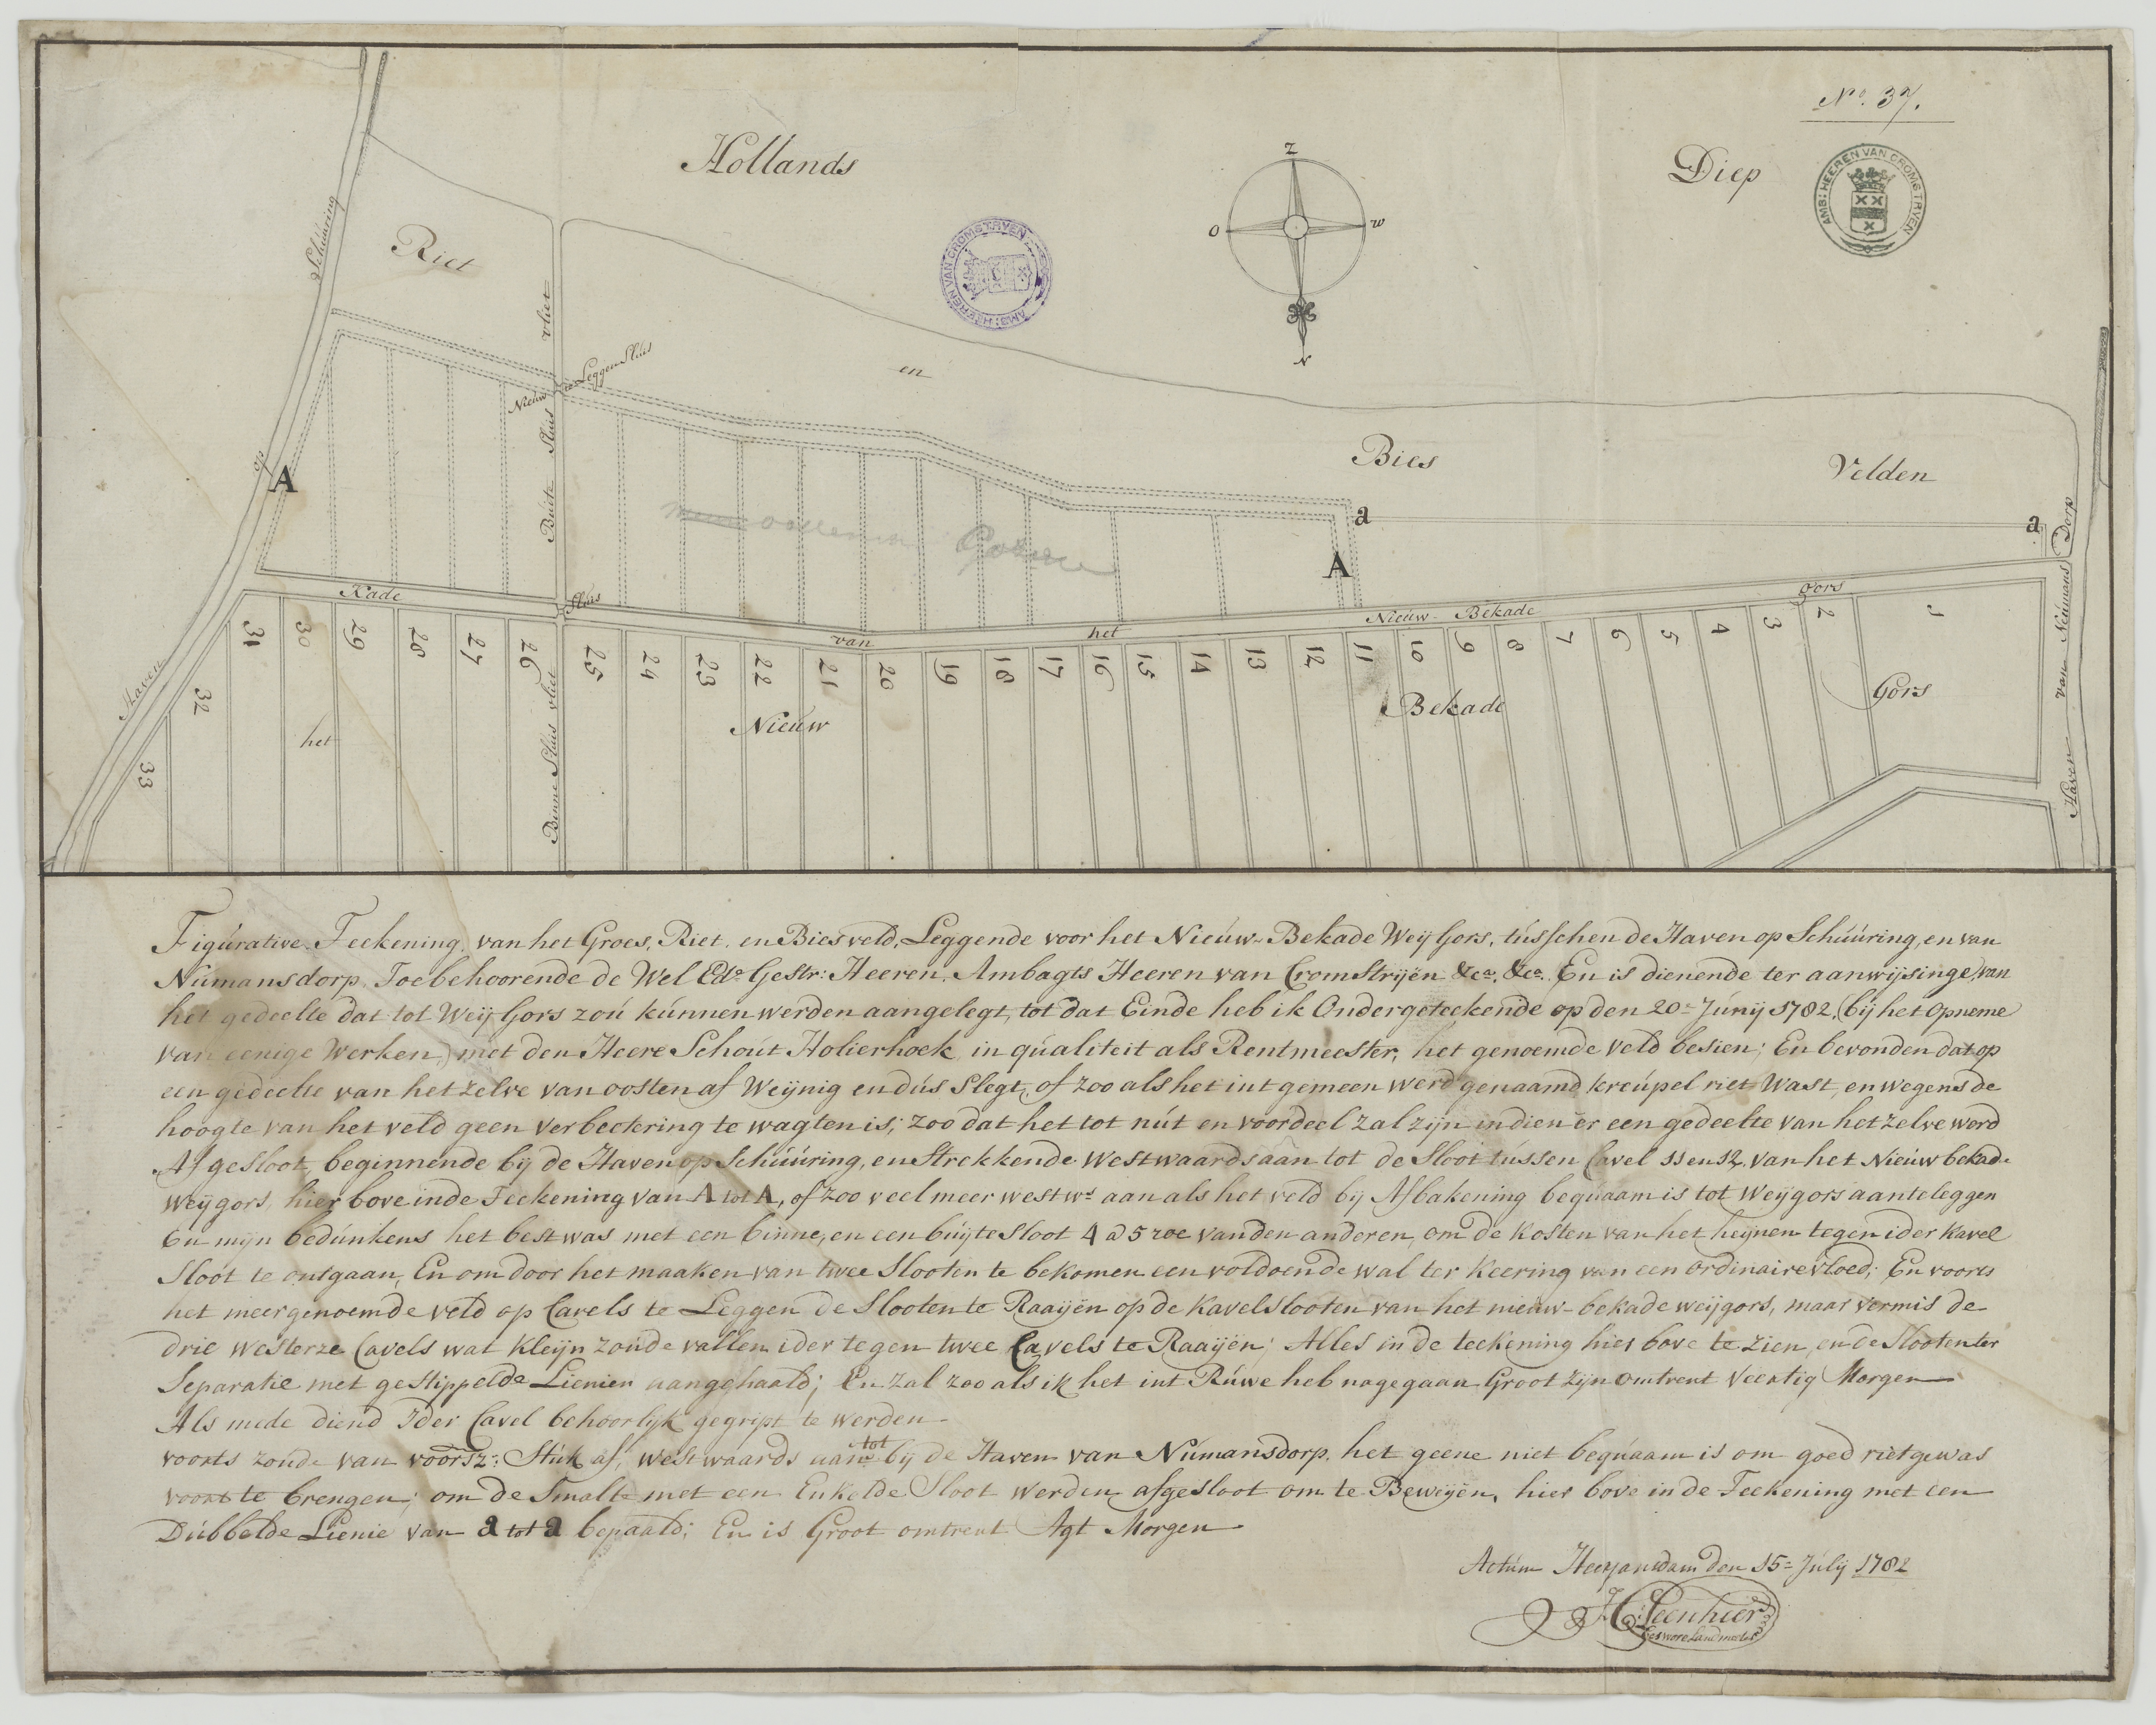 No. 37.
Hollands
Diep
AMB: HEEREN VAN CROMSTRYEN
AMB: HEEREN VAN CROMSTRYEN
Z
O
W
N
Riet
en
Bies
Velden
Haven op Schúúring
vliet
Nieuw te Leggen Slúis
Búite Slúis
A
a
a
A
Gorzen
Kade van het Nieúw-Bekade gors
Slúis
Haven van Núemans Dorp
31 30 29 28 27 26 25 24 23 22 21 20 19 18 17 16 15 14 13 12 11 10 9 8 7 6 5 4 3 2 1
32
33
het
Nieúw
Bekade
Gors
Binne Slúis vliet
Figúrative Teekening, van het Groes, Riet, en Biesveld, Leggende voor het Nieúw-Bekade Weij Gors, tússchen de Haven op Schúúring, en van
Númansdorp, Toebehoorende de Wel Edo. GeStr: Heeren, Ambagts Heeren van CromStrijën &ca. &ca. En is dienende ter aanwijsinge van
het gedeelte dat tot Weij-Gors zoú kúnnen werden aangelegt, tot dat Einde heb ik Ondergeteekende op den 20= Júnij 1782, (bij het Opneme
van eenige Werken,) met den Heere Schoút Holierhoek, in qúaliteit als Rentmeester, het genoemde veld besien; En bevonden dat op
een gedeelte van het zelve van oosten af Weijnig en dús Slegt, of zoo als het int gemeen werd genaamd kreúpel riet Wast, en wegens de
hoogte van het veld geen verbeetering te wagten is; zoo dat het tot nút en voordeel zal zijn indien er een gedeelte van het zelve werd
AfgeSloot, beginnende bij de Haven op Schúúring, en Strekkende Westwaards aan tot de Sloot tússen Cavel 11 en 12, van het Nieúw bekade
weijgors, hier bove in de Teekening van A tot A, of zoo veel meer westws aan als het veld bij Afbakening beqúaam is tot Weijgors aan te leggen
En mijn bedúnkens het best was met een binne, en een búijte Sloot 4 a 5 roe van den anderen, om de kosten van het heijnen tegen ider kavel
Sloot te ontgaan, En om door het maaken van twee Slooten te bekomen een voldoende wal ter keering van een ordinaire vloed; En voorts
het meergenoemde veld op Cavels te Leggen de Slooten te Raaijën op de kavelslooten van het nieúw-bekade weijgors, maar vermis de
drie westerze Cavels wat kleijn zoúde vallen ider tegen twee Cavels te Raaijën; Alles in de teekening hier bove te zien, en de Slooten ter
Separatie met gestippelde Lienien aangehaald; En zal zoo als ik het int Rúwe heb nagegaan Groot zijn omtrent Veertig Morgen
Als mede diend Ider Cavel behoorlijk gegript te werden
voorts zoúde van voorsz: Stúk af, westwaards aan tot bij de Haven van Númansdorp, het geene niet beqúaam is om goed rietgewas
voort te brengen; om de Smalte met een Enkelde Sloot werden afgesloot om te Beweijën, hier bove in de Teekening met een
Dúbbelde Lienie van a tot a bepaald; En is Groot omtrent Agt Morgen
Actúm Heerjansdam den 15= Júlij 1782
Gesworelandmeeter